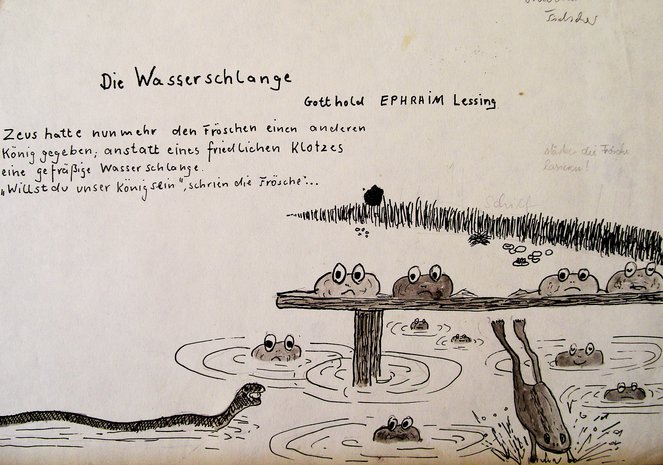 Tadscher
Die Wasserschlange
Gotthold EPHRAIM Lessing
Zeus hatte nunmehr den Fröschen einen anderen
König gegeben; anstatt eines friedlichen Klotzes
eine gefräßige Wasserschlange.
„Willst du unser König sein", schrien die Frösche"...
die Frösche
Schilf